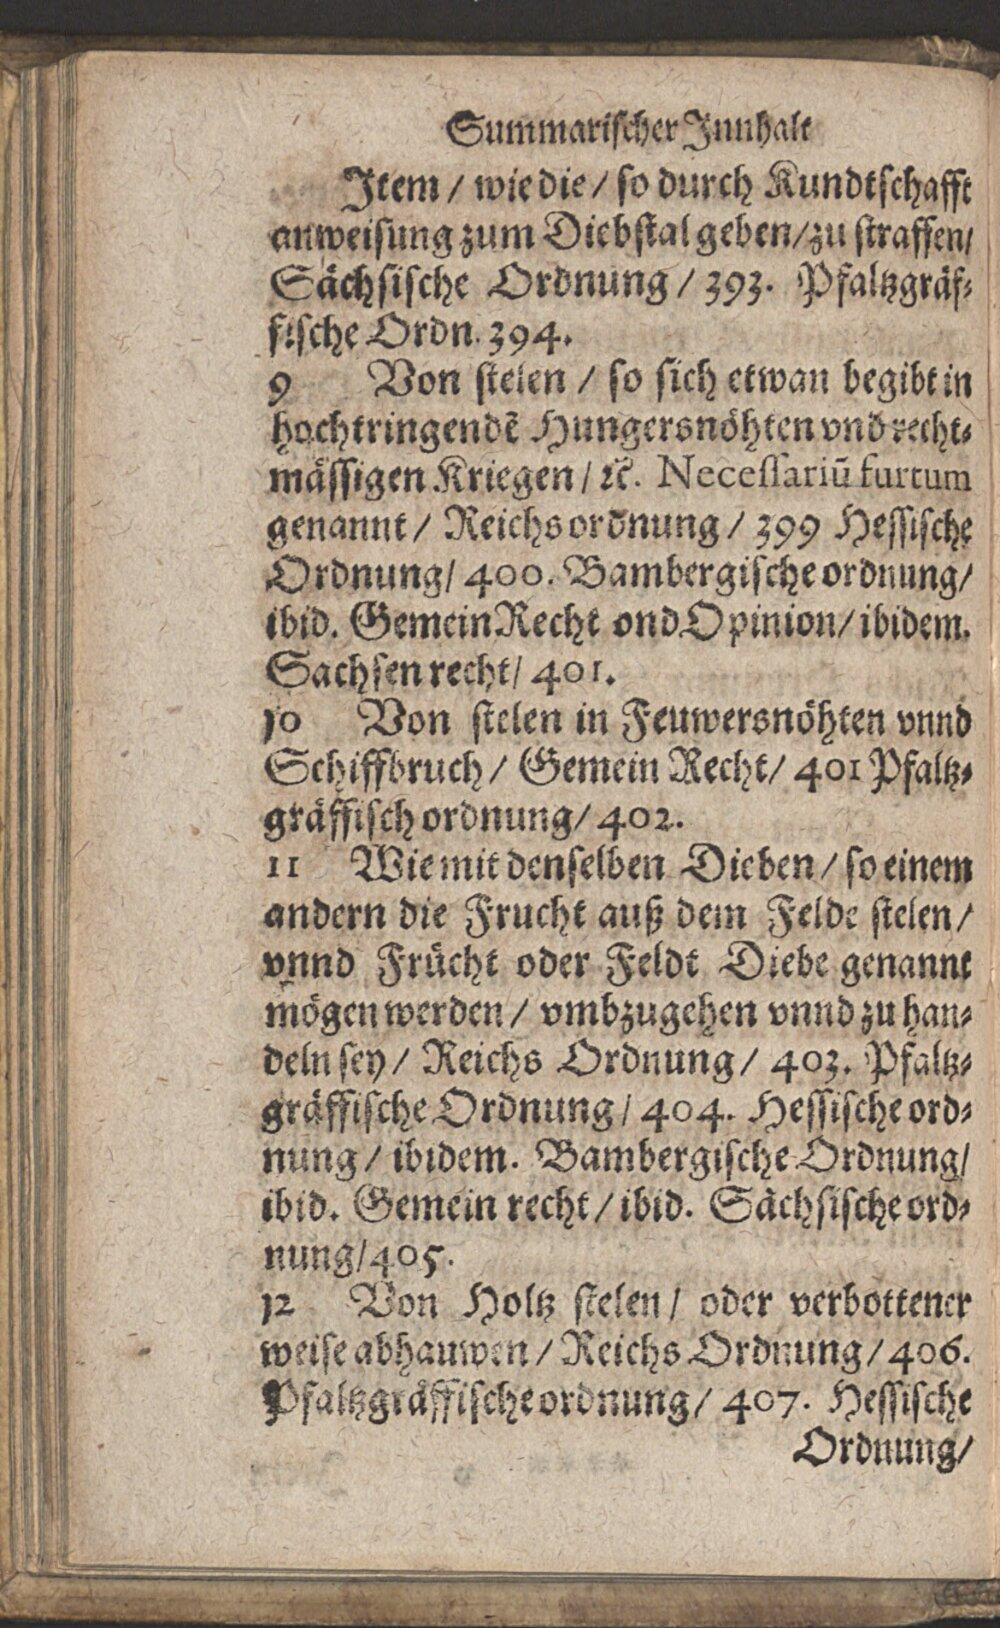 Summarischer Innhalt
Item / wie die / so durch Kundtschafft
anweisung zum Diebstal geben / zu straffen /
Sächsische Ordnung / 393. Pfaltzgräf-
fische Ordn. 394.
9 Von stelen / so sich etwan begibt in
hochtringendē Hungersnöhten vnd recht-
mässigen Kriegen / ꝛc. Necessariū furtum
genannt / Reichsordnung / 399 Hessische
Ordnung / 400. Bambergische ordnung /
ibid. Gemein Recht ond Opinion / ibidem.
Sachsen recht / 401.
10 Von stelen in Feuwersnöhten vnnd
Schiffbruch / Gemein Recht / 401 Pfaltz-
gräffisch ordnung / 402.
11 Wie mit denselben Dieben / so einem
andern die Frucht auß dem Felde stelen /
vnnd Frücht oder Feldt Diebe genannt
mögen werden / vmbzugehen vnnd zu han-
deln sey / Reichs Ordnung / 403. Pfaltz-
gräffische Ordnung / 404. Hessische ord-
nung / ibidem. Bambergische Ordnung /
ibid. Gemein recht / ibid. Sächsische ord-
nung / 405.
12 Von Holtz stelen / oder verbottener
weise abhauwen / Reichs Ordnung / 406.
Pfaltzgräffische ordnung / 407. Hessische
Ordnung /